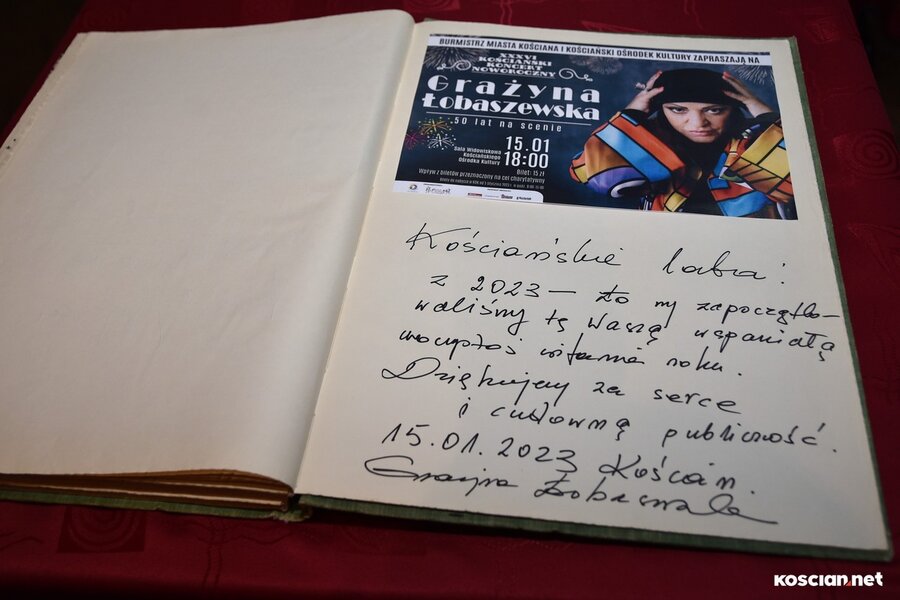 BURMISTRZ MIASTA KOŚCIANA I KOŚCIAŃSKI OŚRODEK KULTURY ZAPRASZAJĄ NA
XXXVI
KOŚCIAŃSKI
KONCERT
NOWOROCZNY
Grażyna
Łobaszewska
50 lat na scenie
Sala Widowiskowa
Kościańskiego
Ośrodka Kultury
15.01
18:00
Bilet: 15 zł
Wpływ z biletów przeznaczony na cel charytatywny
Kościańskie lata:
z 2023 – to my zapoczątko-
waliśmy tę Waszą wspaniałą
uroczystość witania roku.
Dziękujemy za serce
i cudowną publiczność.
15.01.2023 Kościan.
Grażyna Łobaszewska
KOSCIAN.net